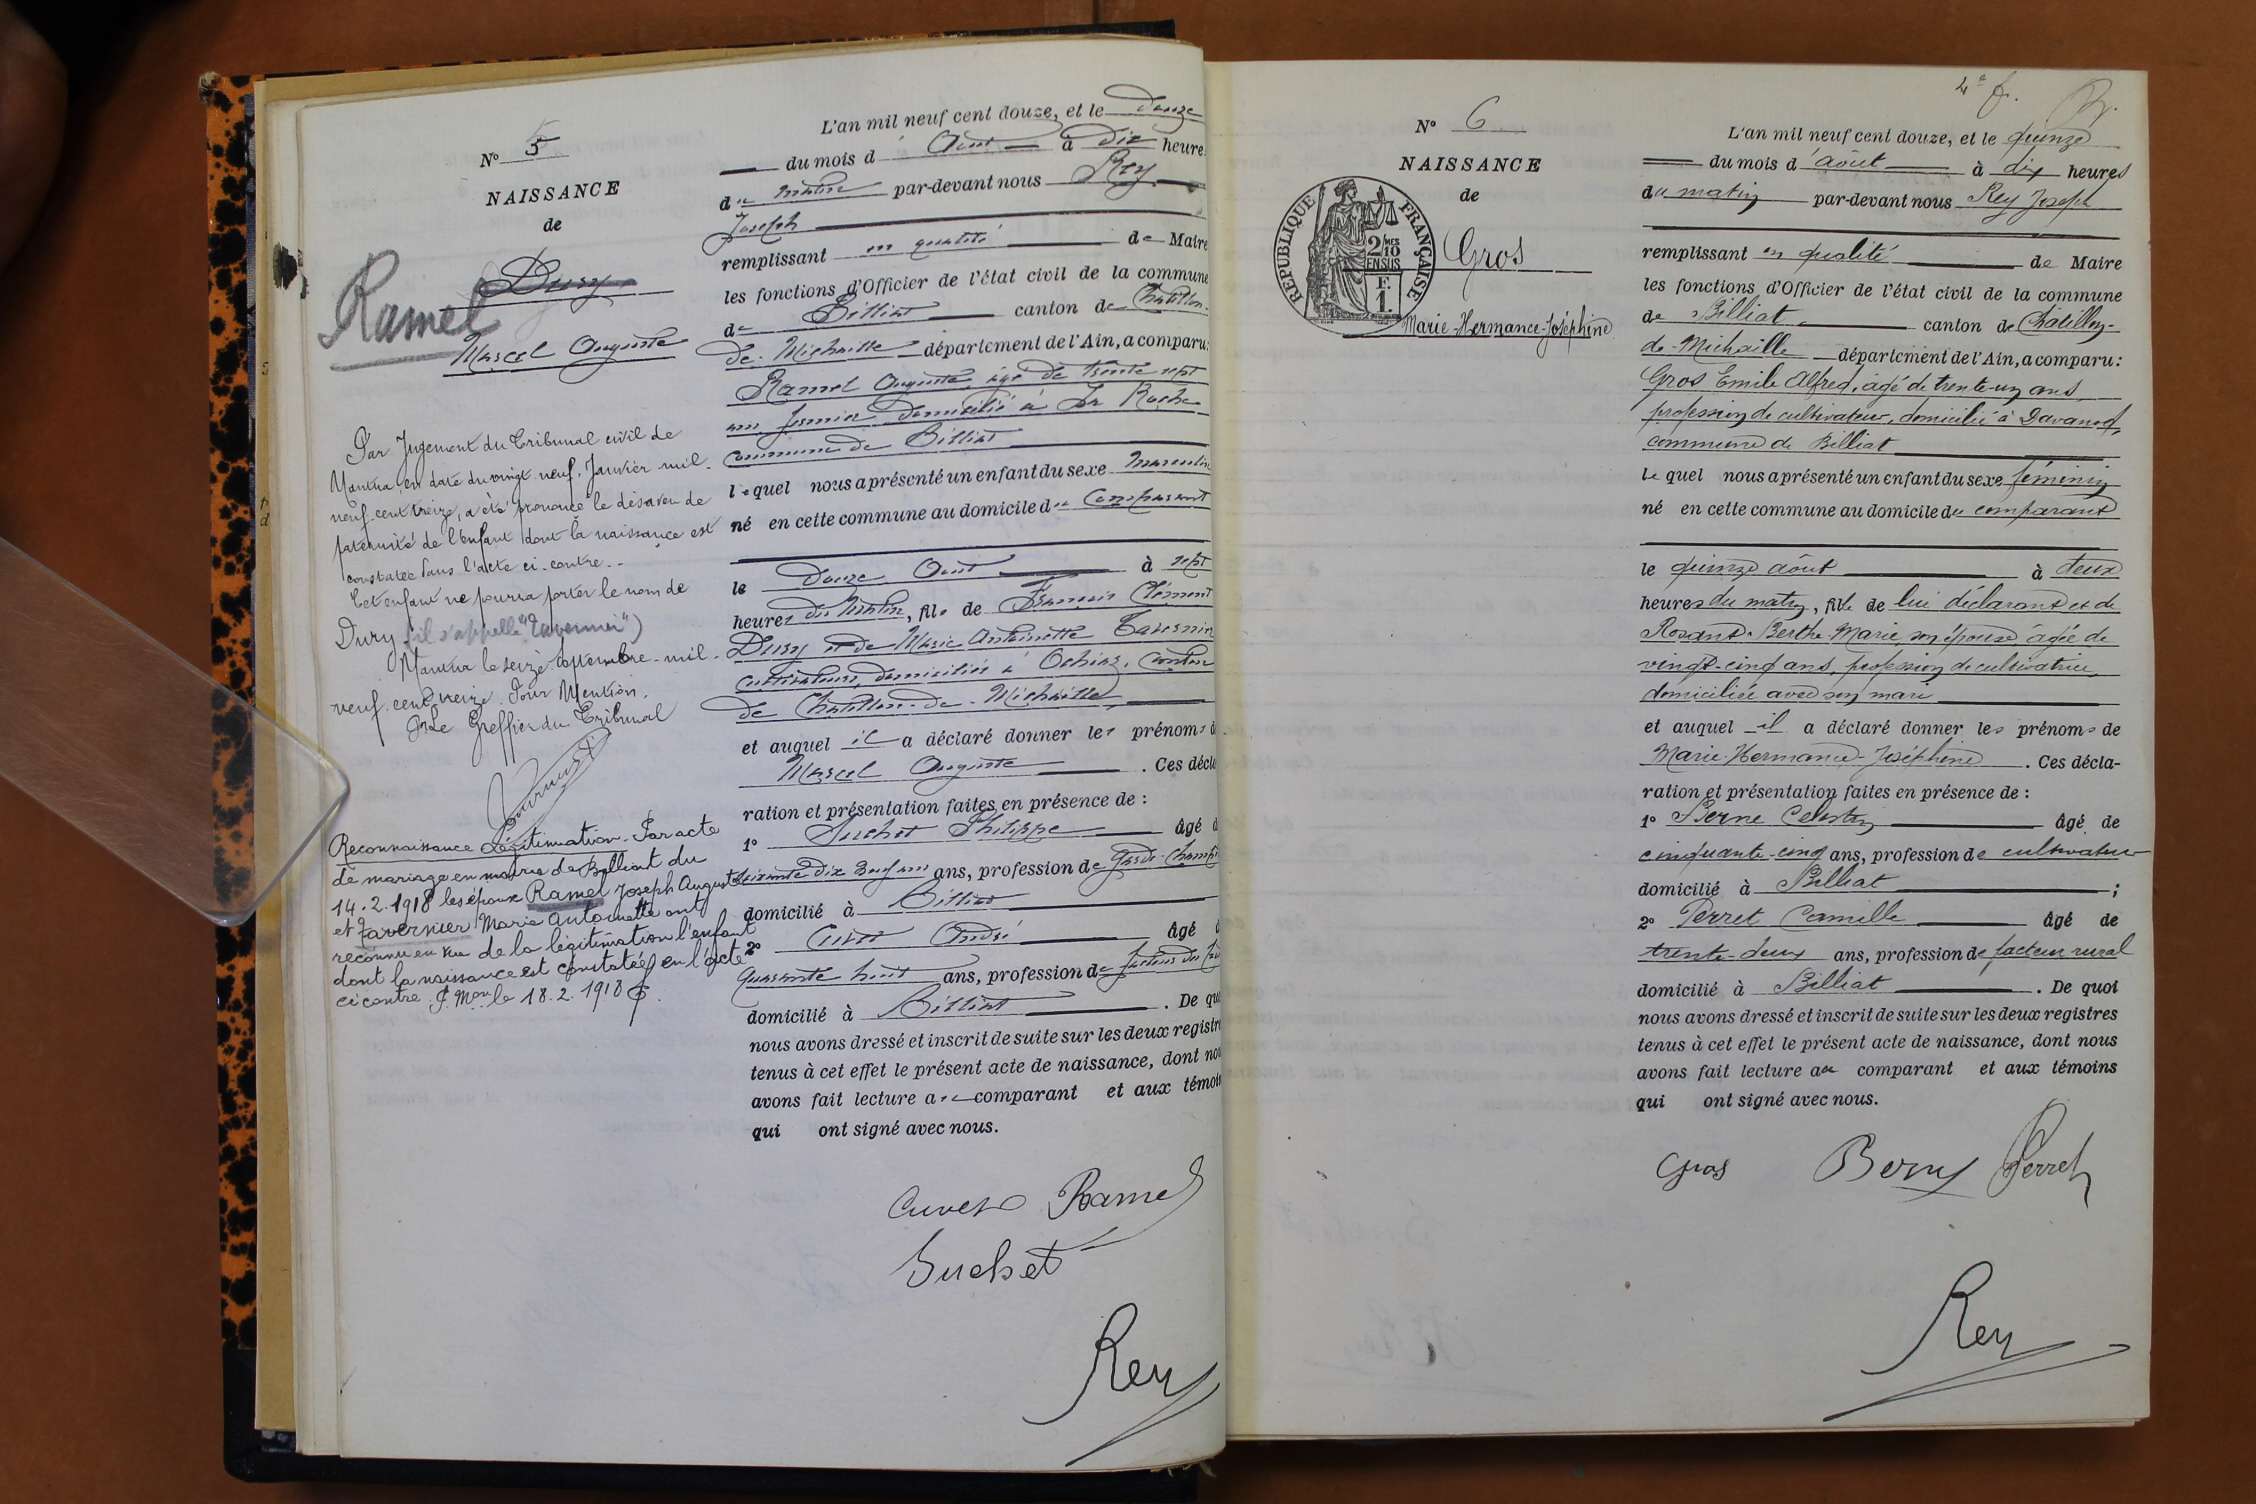 N° 5
NAISSANCE
de
Dury
Ramel
Marcel Auguste
Par Jugement du Tribunal civil de
Nantua, en date du vingt neuf Janvier mil
neuf cent treize, a été prononcé le désaveu de
paternité de l'enfant dont la naissance est
constatée dans l'acte ci-contre.
Cet enfant ne pourra porter le nom de
Dury (il s'appelle "Tavernier")
Nantua le seize septembre mil
neuf cent treize. Pour Mention.
Le Greffier du Tribunal
Reconnaissance Légitimation. Par acte
de mariage en mairie de Billiat du
14.2.1918 les époux Ramel Joseph Auguste
et Tavernier Marie Antoinette ont
reconnu en vue de la légitimation l'enfant
dont la naissance est constatée en l'acte
ci contre. P. Mon le 18.2.1918
L'an mil neuf cent douze, et le douze
du mois d Aout à Dix heure
du matin par-devant nous Rey
Joseph
remplissant en qualité de Maire
les fonctions d'Officier de l'état civil de la commune
de Billiat canton de Chatillon-
de-Michaille département de l'Ain, a comparu:
Ramel Auguste, âgé de trente sept
ans fermier domicilié à La Roche
commune de Billiat
lequel nous a présenté un enfant du sexe masculin
né en cette commune au domicile du comparant
le Douze Aout à sept
heures du matin, fils de François Clément
Dury et de Marie Antoinette Tavernier
cultivateurs, domiciliés à Ochiaz, canton
de Chatillon-de-Michaille,
et auquel il a déclaré donner les prénoms d
Marcel Auguste . Ces décla
ration et présentation faites en présence de :
1° Suchet Philippe âgé d
soixante dix neuf ans ans, profession de garde-champ
domicilié à Billiat
2° Cuvet André âgé d
quarante huit ans, profession de facteur
domicilié à Billiat . De quo
nous avons dressé et inscrit de suite sur les deux registre
tenus à cet effet le présent acte de naissance, dont nou
avons fait lecture au comparant et aux témoin
qui ont signé avec nous.
Cuvet Ramel
Suchet
Rey
4e f.
N° 6
NAISSANCE
de
RÉPUBLIQUE FRANÇAISE
2/10 MES
EN SUS
F.
1.
Gros
Marie-Hermance-Joséphine
L'an mil neuf cent douze, et le quinze
du mois d'août à dix heures
du matin par-devant nous Rey Joseph
remplissant en qualité de Maire
les fonctions d'Officier de l'état civil de la commune
de Billiat canton de Chatillon-
de-Michaille département de l'Ain, a comparu:
Gros Emile Alfred, âgé de trente-un ans,
profession de cultivateur, domicilié à Davanod,
commune de Billiat
lequel nous a présenté un enfant du sexe féminin
né en cette commune au domicile du comparant
le quinze août à deux
heures du matin, fille de lui déclarant et de
Rosand Berthe Marie son épouse âgée de
vingt-cinq ans, profession de cultivatrice,
domiciliée avec son mari
et auquel il a déclaré donner les prénoms de
Marie-Hermance-Joséphine . Ces décla-
ration et présentation faites en présence de :
1° Berne Celestin âgé de
cinquante-cinq ans, profession de cultivateur
domicilié à Billiat ;
2° Perret Camille âgé de
trente-deux ans, profession de facteur rural
domicilié à Billiat . De quoi
nous avons dressé et inscrit de suite sur les deux registres
tenus à cet effet le présent acte de naissance, dont nous
avons fait lecture au comparant et aux témoins
qui ont signé avec nous.
Gros Berne Perret
Rey